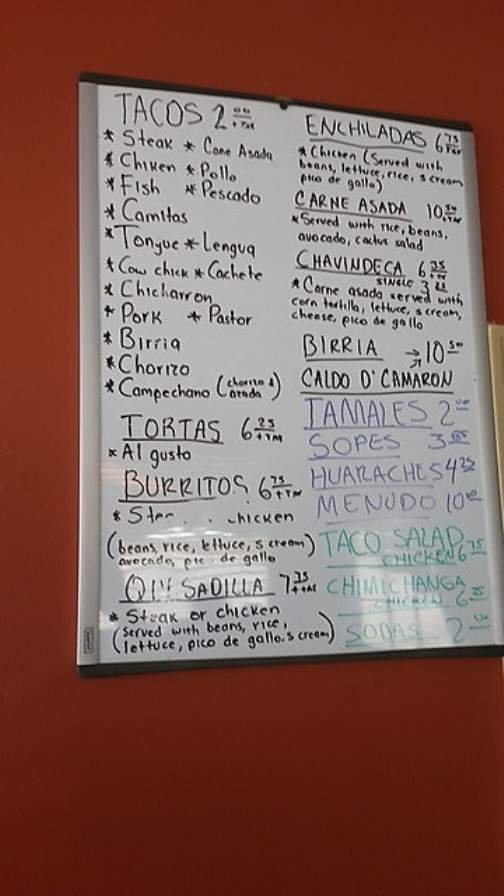 TACOS 2.00 +TAX
* Steak * Carne Asada
* Chiken * Pollo
* Fish * Pescado
* Carnitas
* Tongue * Lengua
* Cow chick * Cachete
* Chicharron
* Pork * Pastor
* Birria
* Chorizo
* Campechano (chorizo & asada)
TORTAS 6.25 +TAX
* Al gusto
BURRITOS 6.75 +TAX
* chicken
(beans, rice, lettuce, s cream)
avocado, pico de gallo
SADILLA 7.75 +TAX
* Steak or chicken
(served with beans, rice,
lettuce, pico de gallo, s cream)
ENCHILADAS 6.75 +TAX
* Chicken (Served with
beans, lettuce, rice, s cream
pico de gallo)
CARNE ASADA 10.50 +TAX
* Served with rice, beans,
avocado, cactus salad
CHAVINDECA 6.75 +TAX
SINGLE 3.25
* Carne asada served with
corn tortilla, lettuce, s cream,
cheese, pico de gallo
BIRRIA → 10.50
CALDO D' CAMARON
TAMALES 2.00
SOPES 3.25
HUARACHES 4.25
MENUDO 10.00
TACO SALAD
CHICKEN 6.75
CHIMICHANGA
CHICKEN 6.75
SODAS 2.00